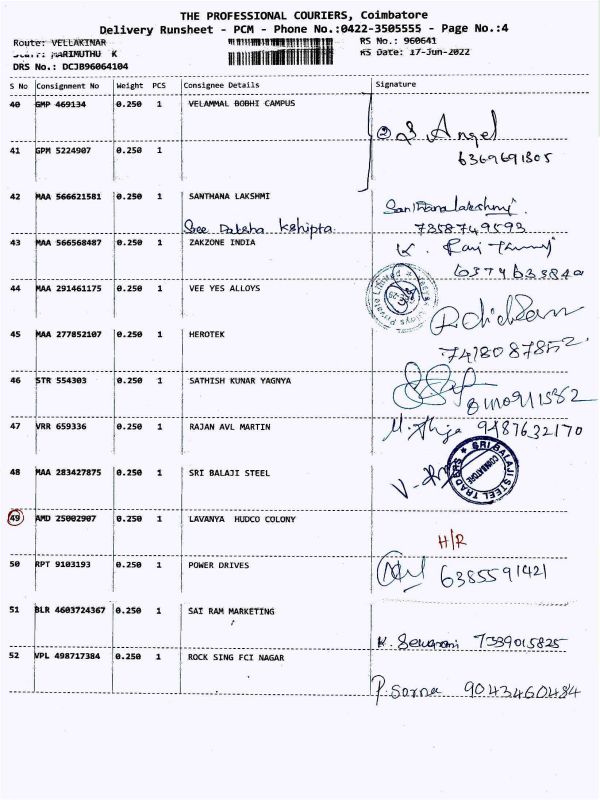 THE PROFESSIONAL COURIERS, Coimbatore
Delivery Runsheet - PCM - Phone No.:0422-3505555 - Page No.:4
Route: VELLAKINAR
RS No.: 960641
MARIMUTHU K
RS Date: 17-Jun-2022
DRS No.: DCJB96064104
S No Consignment No Weight PCS Consignee Details Signature
40 GMP 469134 0.250 1 VELAMMAL BOBHI CAMPUS
Angel
6369691805
41 GPM 5224907 0.250 1
42 MAA 566621581 0.250 1 SANTHANA LAKSHMI
Santhana lakshmi
Sree Daksha Kshipta 7358749593
43 MAA 566568487 0.250 1 ZAKZONE INDIA
K.
44 MAA 291461175 0.250 1 VEE YES ALLOYS
45 MAA 277852107 0.250 1 HEROTEK
7418087852
46 STR 554303 0.250 1 SATHISH KUNAR YAGNYA
47 VRR 659336 0.250 1 RAJAN AVL MARTIN
9487632170
48 MAA 283427875 0.250 1 SRI BALAJI STEEL
SRI BALAJI STEEL TRADERS
COIMBATORE
49 AMD 25002907 0.250 1 LAVANYA HUDCO COLONY
H/R
50 RPT 9103193 0.250 1 POWER DRIVES
6385591421
51 BLR 4603724367 0.250 1 SAI RAM MARKETING
K. 7339015825
52 VPL 498717384 0.250 1 ROCK SING FCI NAGAR
P. Sorna 9043460484